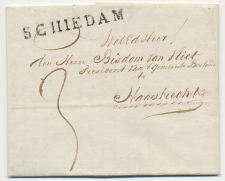 SCHIEDAM
WelEdHeer!
Den Heer Bisdom van Vliet
President van 't Gemeente Bestuur
te
Haastrecht
3